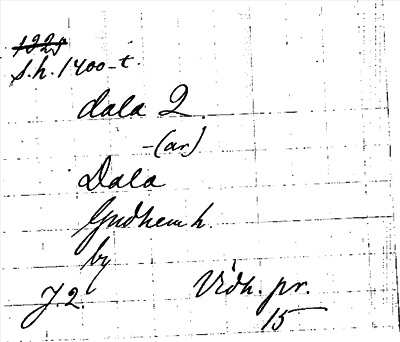 1325
S.h. 1400-t.
dala 2.
-(ar)
Dala
Gudhem h.
by
J.2. Vidh. pr.
15